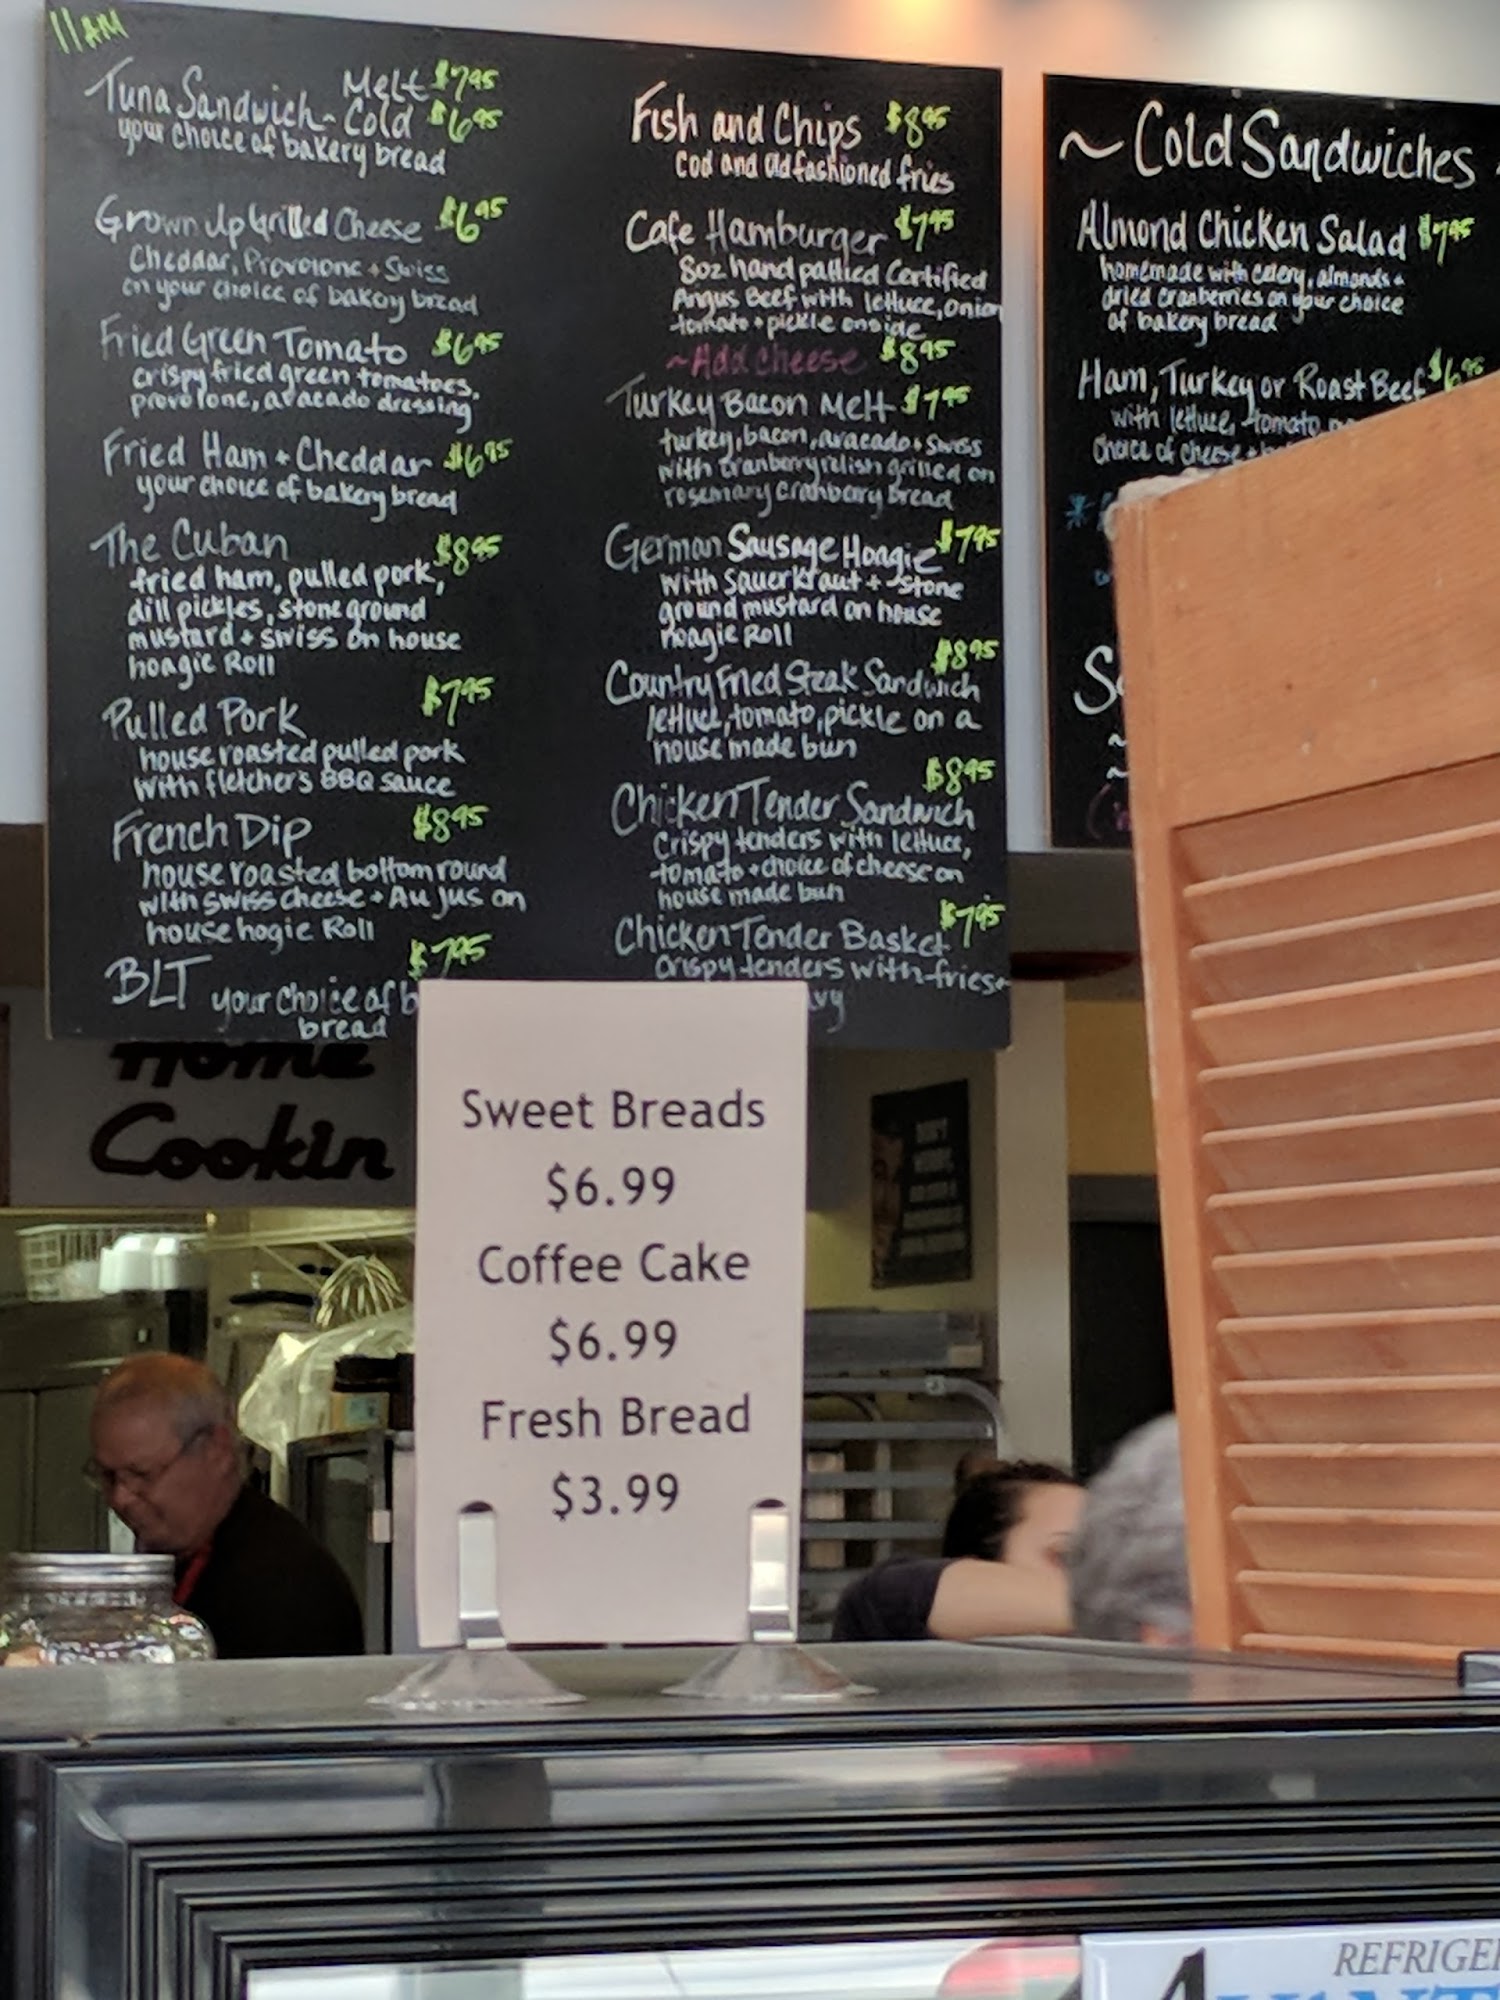 11AM
Melt $7.95
Tuna Sandwich - Cold $6.95
your choice of bakery bread
Grown Up Grilled Cheese $6.95
Cheddar, Provolone + Swiss
on your choice of bakery bread
Fried Green Tomato $6.95
crispy fried green tomatoes,
provolone, avacado dressing
Fried Ham + Cheddar $6.95
your choice of bakery bread
The Cuban $8.95
fried ham, pulled pork,
dill pickles, stone ground
mustard + swiss on house
hoagie Roll
Pulled Pork $7.95
house roasted pulled pork
with fletcher's BBQ sauce
French Dip $8.95
house roasted bottom round
with swiss cheese + Au jus on
house hogie Roll
BLT $7.95
your choice of b
bread
Fish and Chips $8.95
Cod and Old fashioned fries
Cafe Hamburger $7.95
8oz hand pattied Certified
Angus Beef with lettuce, onion
tomato + pickle onside
~Add cheese $8.95
Turkey Bacon Melt $7.95
turkey, bacon, avacado + swiss
with cranberry relish grilled on
rosemary cranberry bread
German Sausage Hoagie $7.95
with sauerkraut + stone
ground mustard on house
hoagie Roll
$8.95
Country Fried Steak Sandwich
lettuce, tomato, pickle on a
house made bun
$8.95
Chicken Tender Sandwich
Crispy tenders with lettuce,
tomato + choice of cheese on
house made bun
Chicken Tender Basket $7.95
crispy tenders with fries +
vy
~ Cold Sandwiches
Almond Chicken Salad $7.95
homemade with celery, almonds +
dried cranberries on your choice
of bakery bread
Ham, Turkey or Roast Beef $6.95
with lettuce, tomato
choice of cheese +
Home
Cookin
Sweet Breads
$6.99
Coffee Cake
$6.99
Fresh Bread
$3.99
REFRIGE